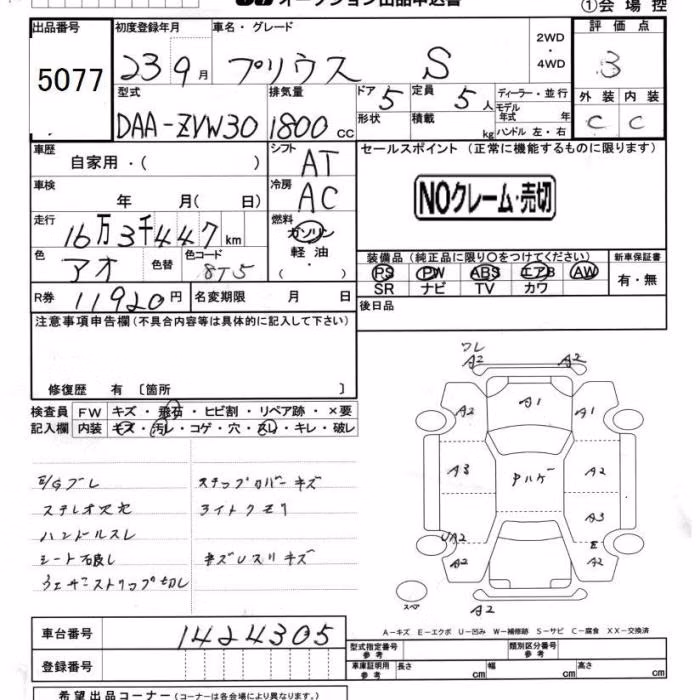 オークション出品申込書
①会場控
出品番号
5077
初度登録年月
23 9月
車名・グレード
プリウス S
2WD
・
4WD
評価点
3
型式
DAA-ZVW30
排気量
1800cc
ドア 5
形状
定員 5人
積載 kg
ディーラー・並行
モデル年式 年
ハンドル 左・右
外装 内装
C C
車歴
自家用・( )
シフト
AT
車検
年 月( 日)
冷房
AC
走行
16万3千447km
燃料
ガソリン
軽油
・
( )
色
アオ
色替
色コード
8T5
R券 11920円
名変期限 月 日
セールスポイント (正常に機能するものに限ります)
NOクレーム・売切
装備品(純正品に限り○をつけてください)
PS PW ABS エアB AW
SR ナビ TV カワ
新車保証書
有・無
後日品
注意事項申告欄(不具合内容等は具体的に記入して下さい)
修復歴 有 〔箇所 〕
検査員 FW キズ・飛石・ヒビ割・リペア跡・×要
記入欄 内装 キズ・汚レ・コゲ・穴・スレ・キレ・破レ
ステップカバーキズ
ライトクモリ
ハンドルスレ
A2 A2
A2 A1 A1
A3 A2
A3
UA2 E
A2 A2
スペア
A2
A-キズ E-エクボ U-凹み W-補修跡 S-サビ C-腐食 XX-交換済
車台番号 1424305
登録番号
型式指定番号 参考
類別区分番号 参考
車庫証明用 参考 長さ cm 幅 cm 高さ cm
希望出品コーナー(コーナーは各会場により異なります。)